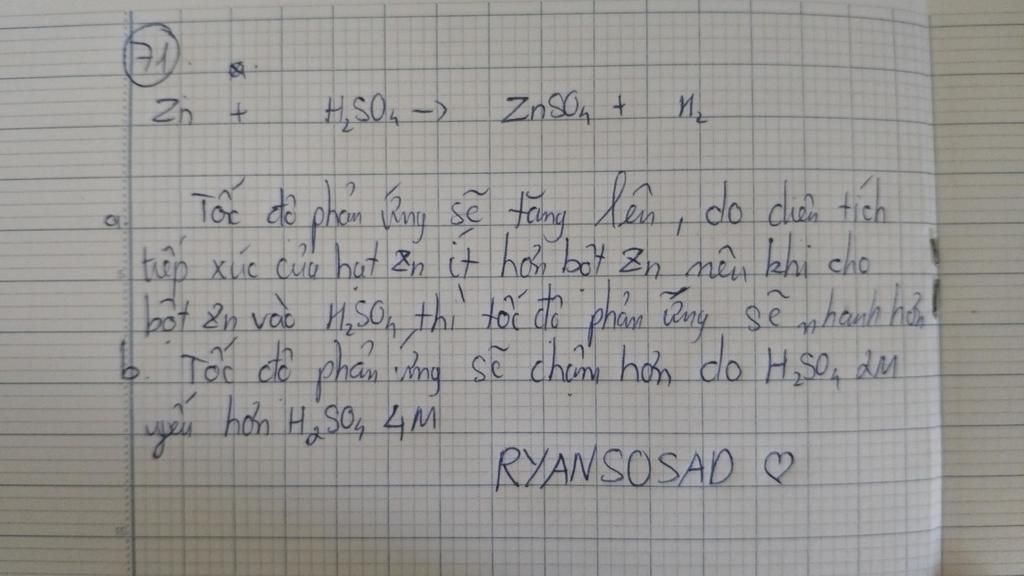 71
Zn + H₂SO₄ → ZnSO₄ + H₂
a. Tốc độ phản ứng sẽ tăng lên, do diện tích
tiếp xúc của hạt Zn ít hơn bột Zn nên khi cho
bột Zn vào H₂SO₄ thì tốc độ phản ứng sẽ nhanh hơn
b. Tốc độ phản ứng sẽ chậm hơn do H₂SO₄ 2M
yếu hơn H₂SO₄ 4M
RYANSOSAD ♡